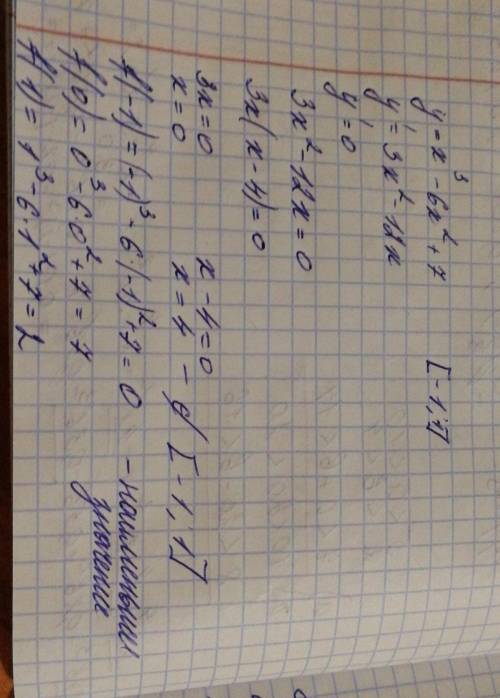 y = x³ - 6x² + 7 [-1; 1]
y' = 3x² - 12x
y' = 0
3x² - 12x = 0
3x(x - 4) = 0
3x = 0 x - 4 = 0
x = 0 x = 4 - ∉ [-1; 1]
f(-1) = (-1)³ - 6·(-1)² + 7 = 0 - наименьшее значение
f(0) = 0³ - 6·0² + 7 = 7
f(1) = 1³ - 6·1² + 7 = 2